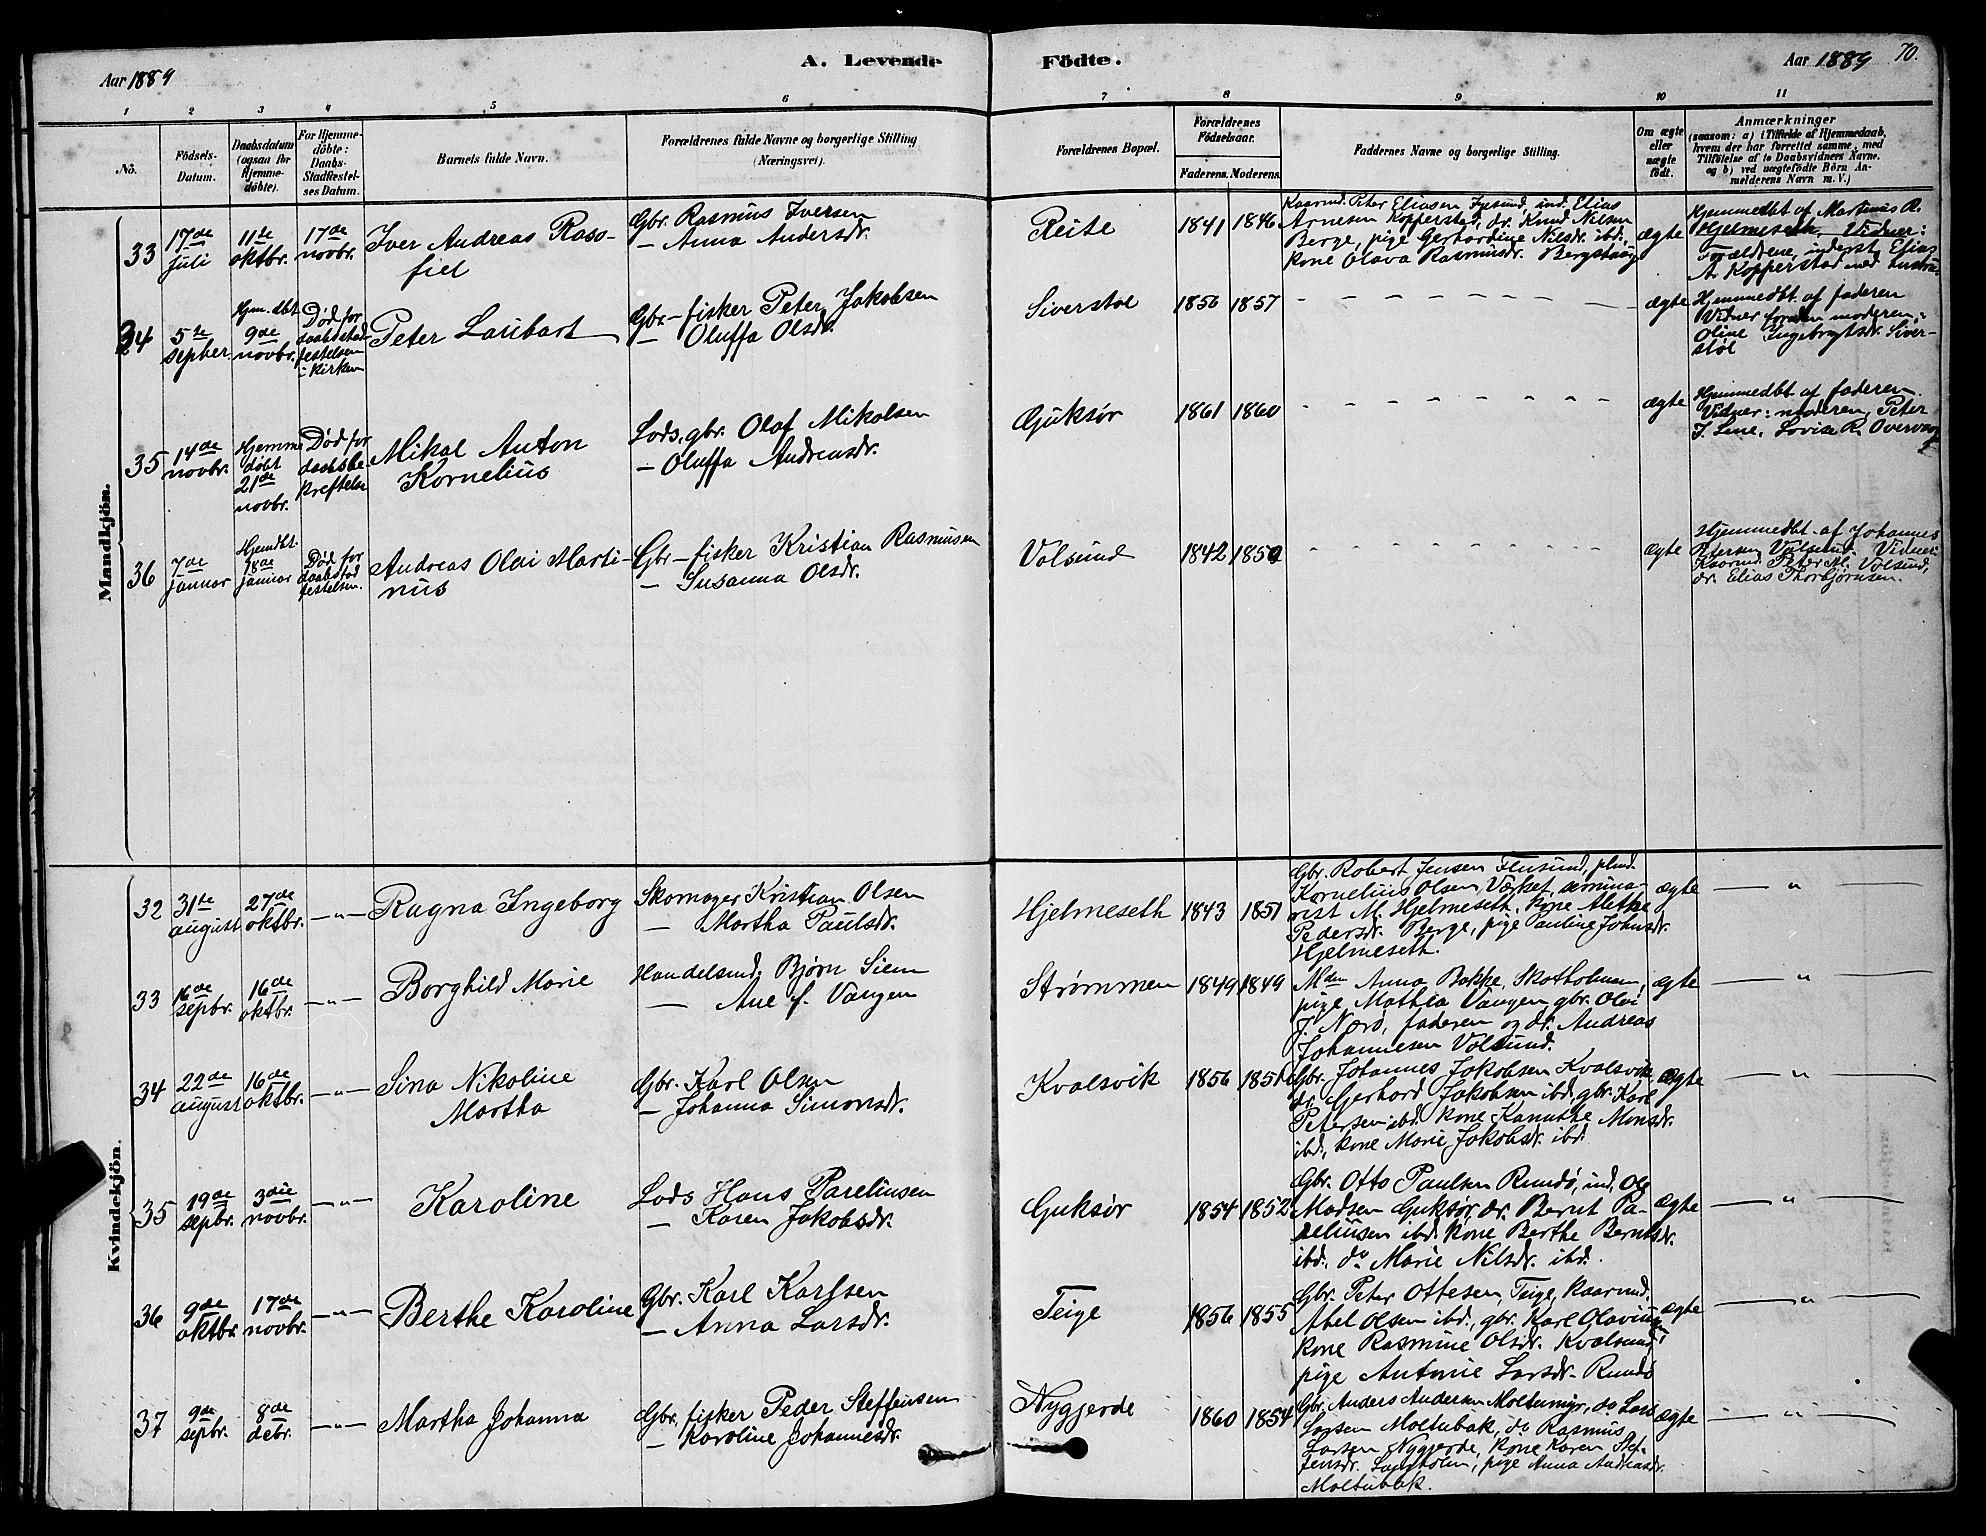 A. Levende Födte.
Aar 1889
Aar 1889 70.
1 2 3 4 5 6 7 8 9 10 11
No.
Födsels-
Datum.
Daabsdatum
(ogsaa for
Hjemme-
döbte).
For Hjemme-
döbte:
Daabs-
Stadfæstel-
ses Datum.
Barnets fulde Navn.
Forældrenes fulde Navne og borgerlige Stilling
(Næringsvei).
Forældrenes Bopæl.
Forældrenes
Födselsaar.
Faderens. Moderens.
Faddernes Navne og borgerlige Stilling.
Om ægte
eller
uægte
födt.
Anmærkninger
(saasom: a) i Tilfælde af Hjemmedaab,
hvem der har forrettet samme, med
Tilföielse af to Daabsvidners Navne,
og b) ved uægtefödte Börn An-
melderens Navn m. V.)
Mandkjön.
33
17de
juli
11te
oktbr.
17de
novbr.
Iver Andreas Raso-
fiel
Gbr. Rasmus Iversen
— Anna Andersdr.
Reite
1841 1846
Kaarmd. Peter Eliasen Igesund, ind. Elias
Arnesen Kopperstad, dr. Knud Nilsen
Berge, pige Gerhardine Nilsdr. ibd.,
kone Olava Rasmusdr. Bergshaug
ægte
Hjemmedbt af Martinus R.
Hjelmeseth. Vidner:
Forældrene, inderst Elias
A. Kopperstad med hustru
34
5te
septber.
Hjem.dbt
9de
novbr.
Død før
daabsstad
festelsen
i kirken
Peter Laubart
Gbr.—fisker Peter Jakobsen
— Oluffa Olsdr.
Siverstøl
1856 1857
ægte
Hjemmedbt. af faderen
Vidner foruden moderen:
Oline Ingebrigtsdr. Siver-
støl
35
14de
novbr.
Hjemme
døbt
21de
novbr.
Død før
daabsbe
kreftelse
Mikal Anton
Kornelius
Lods, gbr. Olaf Mikalsen
— Oluffa Andreasdr.
Gjuksør
1861 1860
ægte
Hjemmedbt. af faderen.
Vidner: moderen, Peter
J. Lene, Lovise R. Overvaag
36
7de
januar
Hjemdbt.
18de
januar
Død før
daabsstad
festelsen.
Andreas Olai Marti-
nus
Gbr—fisker Kristian Rasmusen
— Susanna Olsdr.
Volsund
1842 1850
ægte
Hjemmedbt. af Johannes
Petersen Volsund. Vidner:
Kaarmd. Peter M. Volsund,
dr. Elias Thorbjørnsen.
Kvindekjön.
32
31te
august
27de
oktbr.
—"—
Ragna Ingeborg
Skomager Kristian Olsen
— Martha Paulsdr.
Hjelmeseth
1843 1851
Gbr. Robert Jensen Flusund, plmd.
Kornelius Olsen Værket, semina-
rist M. Hjelmeseth, kone Alethe
Pedersdr. Berge, pige Pauline Johnsdr.
Hjelmeseth.
ægte
— " —
33
16de
sepbr.
16de
oktbr.
—"—
Borghild Marie
Handelsmd. Bjørn Siem
— Ane f. Vangen
Strømmen
1849 1849
Mdm Anna Bakke, Skotholmen,
pige Mathea Vangen, gbr. Olai
J. Nerø, faderen og dr. Andreas
Johannesen Volsund.
ægte
— " —
34
22de
august
16de
oktbr.
—"—
Sina Nikoline
Martha
Gbr. Karl Olsen
— Johanna Simonsdr.
Kvalsvik
1856 1851
Gbr. Johannes Jakobsen Kvalsvik
dr. Gerhard Jakobsen ibd., gbr. Karl
Petersen ibd. kone Kanuthe Monsdr.
ibd., kone Marie Jakobsdr. ibd.
ægte
— " —
35
19de
sepbr.
3die
novbr.
—"—
Karoline
Lods Hans Parelinsen
— Karen Jakobsdr.
Gjuksør
1854 1852
Gbr. Otto Paulsen Rundø, ind. Ole
Madsen Gjuksør, dr. Bernt Pa-
reliusen ibd. kone Berthe Berntsdr.
ibd. do Marie Nilsdr. ibd.
ægte
— " —
36
9de
oktbr.
17de
novbr.
—"—
Berthe Karoline
Gbr. Karl Karlsen
— Anna Larsdr.
Teige
1856 1855
Gbr. Peter Ottesen Teige, kaarmd.
Abel Olsen ibd., gbr. Karl Olavius,
kone Rasmine Olsdr. Kvalsund
pige Antonie Larsdr. Rundø
ægte
— " —
37
9de
sepbr.
8de
debr.
—"—
Martha Johanna
Gbr. fisker Peder Steffensen
— Karoline Johannesdr.
Nygjerde
1860 1854
Gbr. Anders Andersen Moltumyr, do Lars
Larsen Moltubak, do Rasmus
Larsen Nygjerde, kone Karen Stef-
fensdr. , pige Anna Andreasdr.
Moltubak.
ægte
— " —